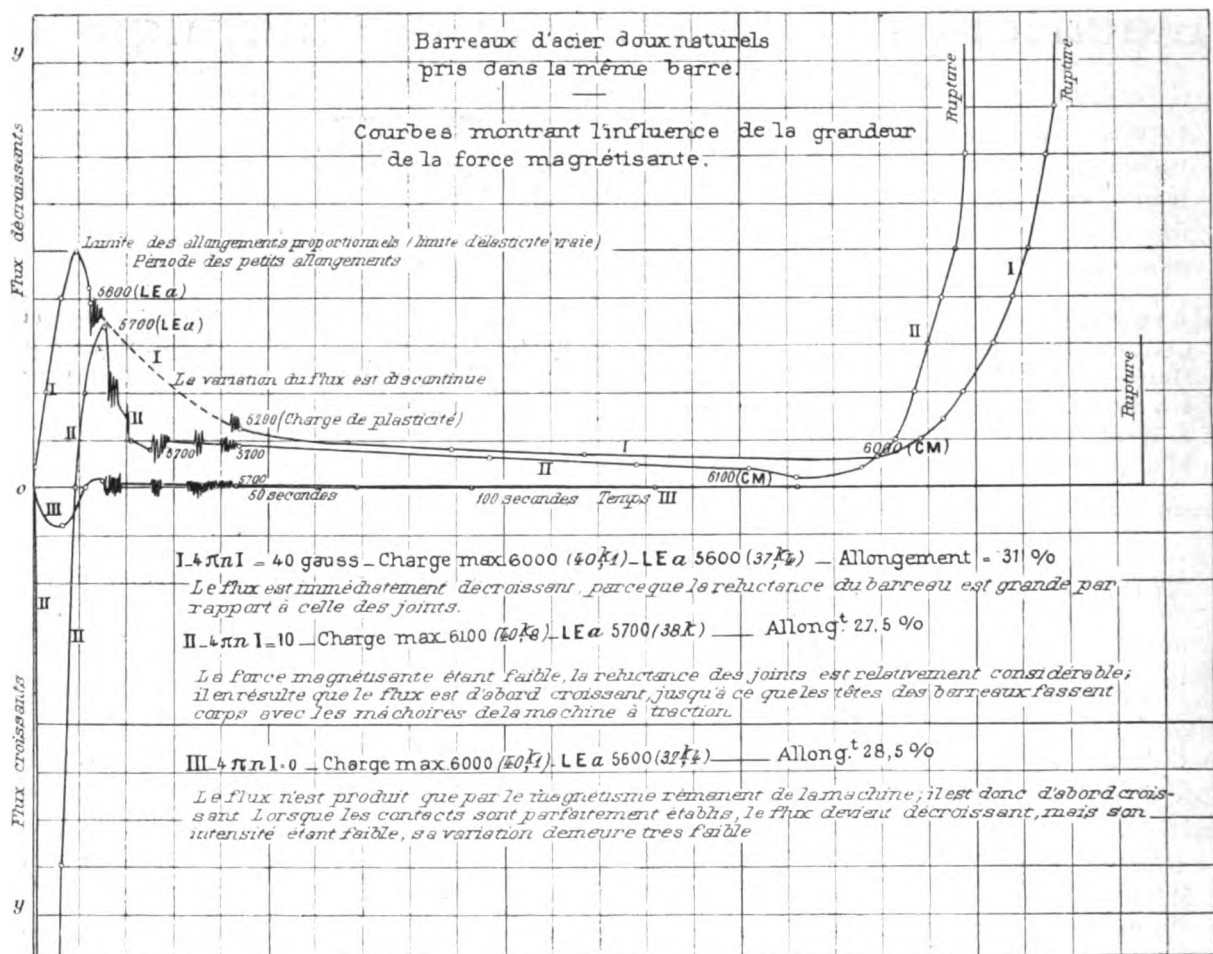 Barreaux d'acier doux naturels
pris dans la même barre.
Courbes montrant l'influence de la grandeur
de la force magnétisante.
y
Flux décroissants
o
Flux croissants
y
Rupture
Rupture
Rupture
Limite des allongements proportionnels (limite d'élasticité vraie)
Période des petits allongements
5600 (LEa)
5700 (LEa)
I
La variation du flux est discontinue
5200 (Charge de plasticité)
I
II
II
I
II
I
II
5700
5700
6000 (CM)
6100 (CM)
5700
50 secondes
100 secondes Temps III
III
II
II
I_4πnI = 40 gauss_Charge max.6000 (40,k1)_LEa 5600 (37,k4) _ Allongement = 31 %
Le flux est immédiatement décroissant, parce que la reluctance du barreau est grande par
rapport à celle des joints.
II_4πnI=10 _ Charge max.6100 (40,k8)_LEa 5700 (38k) ___ Allong.t 27,5 %
La force magnétisante étant faible, la reluctance des joints est relativement considérable;
il en résulte que le flux est d'abord croissant, jusqu'à ce que les têtes des barreaux fassent
corps avec les mâchoires de la machine à traction.
III_4πnI=0 _ Charge max.6000 (40,k1)_LEa 5600 (37,k4) ___ Allong.t 28,5 %
Le flux n'est produit que par le magnétisme rémanent de la machine; il est donc d'abord crois-
sant Lorsque les contacts sont parfaitement établis, le flux devient décroissant, mais son
intensité étant faible, sa variation demeure très faible